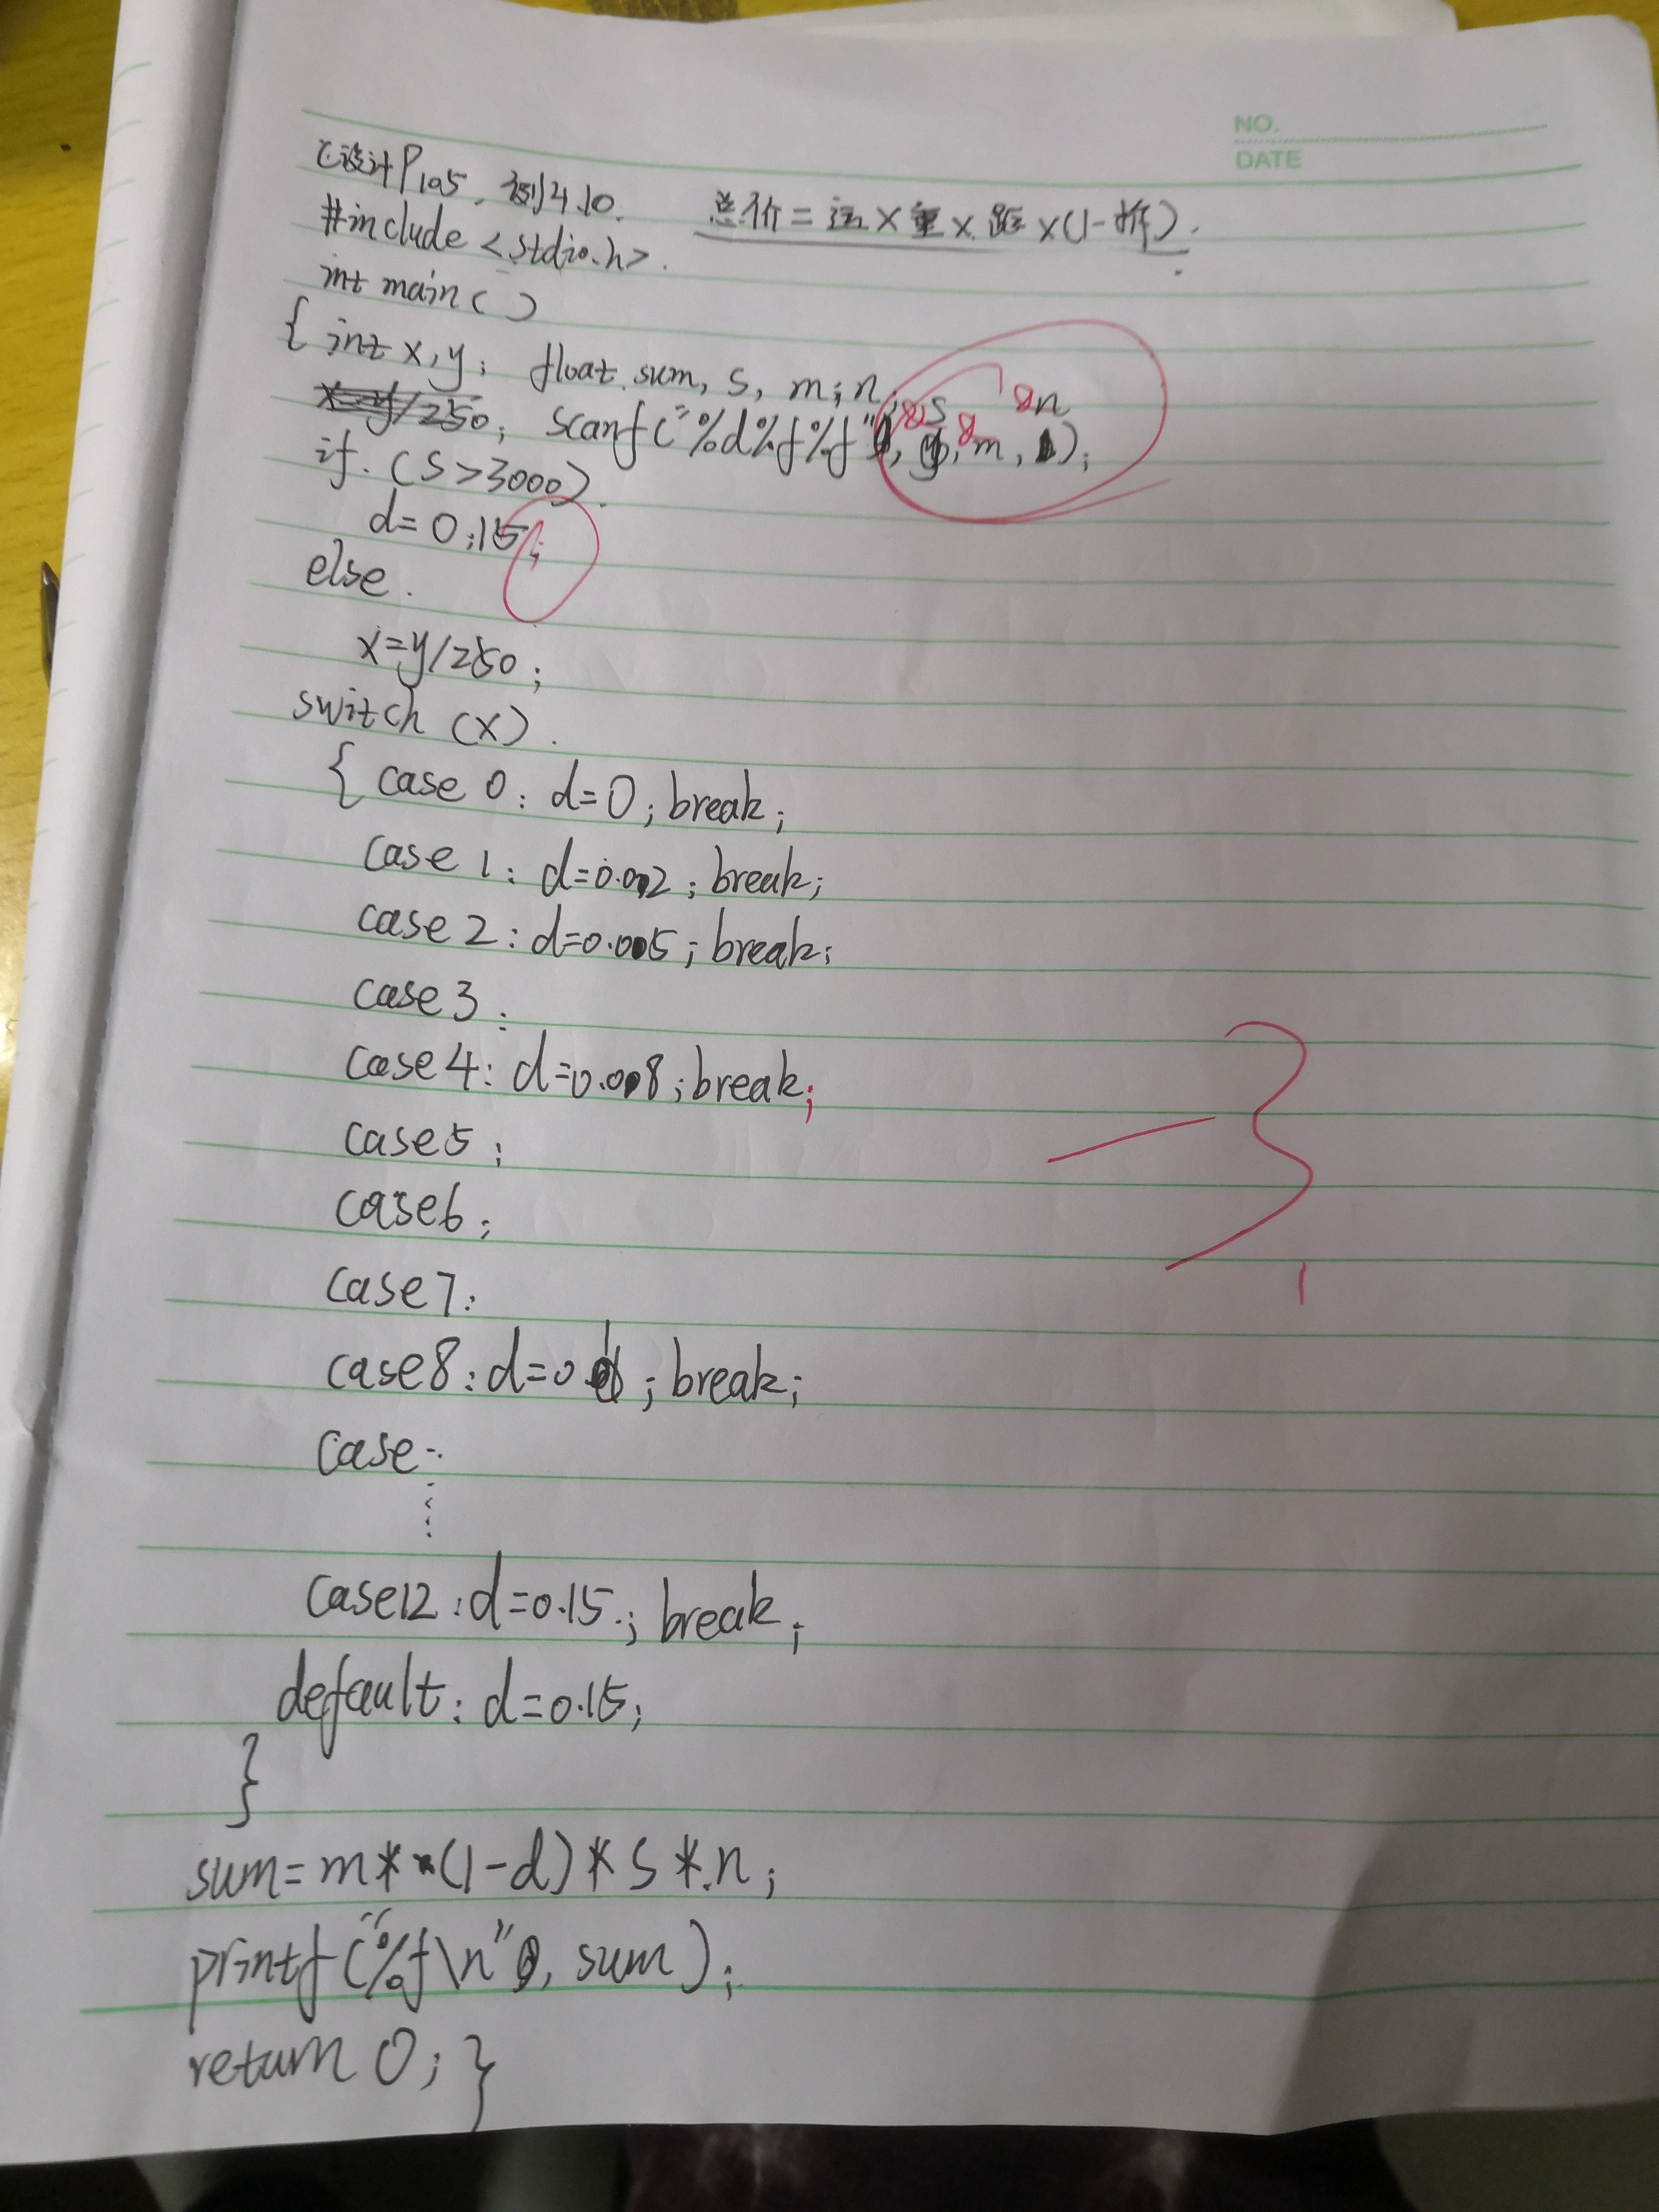 NO.
DATE
C设计P105. 例4.10. 总价=运×重×距×(1-折).
#include <stdio.h>.
int main()
{ int x,y; float sum, s, m; n;
&s &n
scanf("%d%f%f", &m, );
if. (s>3000).
d=0.15;
else.
x=y/250;
switch (x).
{ case 0: d=0; break;
case 1: d=0.002; break;
case 2: d=0.005; break;
case 3:
case 4: d=0.008; break;
case5;
case6;
case7:
case8: d=0. ; break;
case..
⋮
case12: d=0.15.; break;
default: d=0.15;
}
sum=m*(1-d)*s*.n;
printf("%f\n", sum);
return 0; }